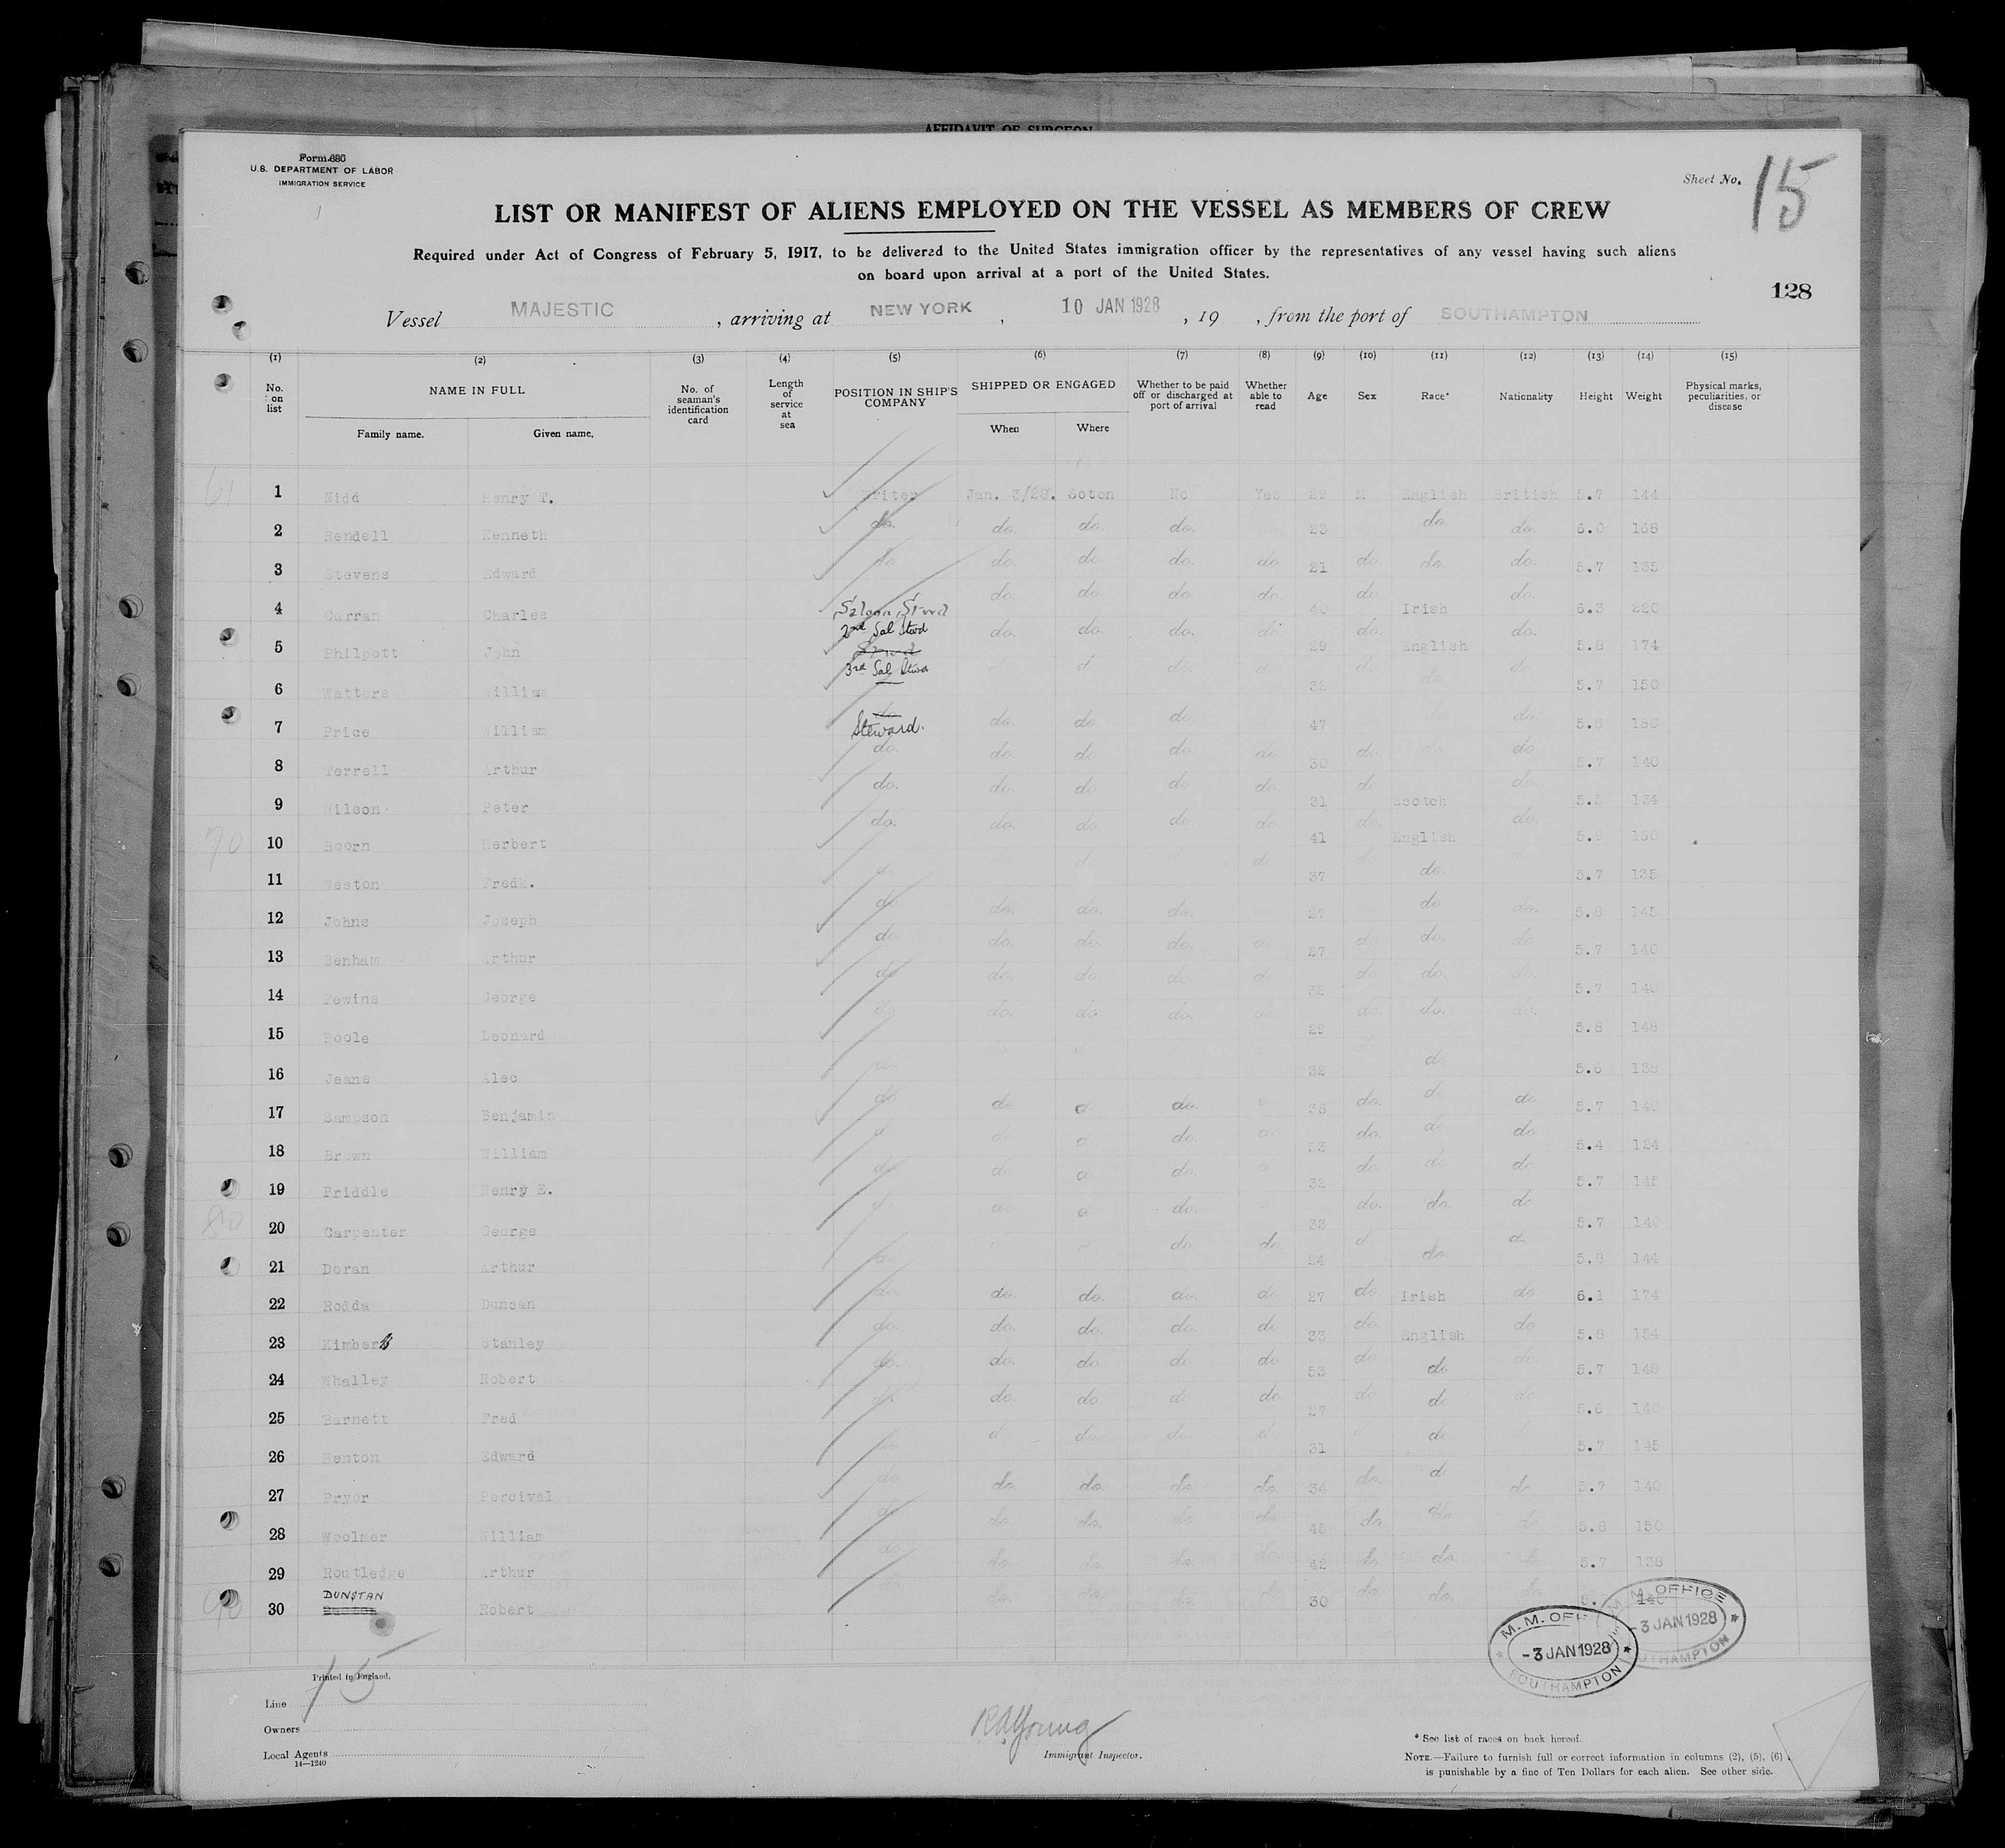 AFFIDAVIT OF SURGEON
Form 680
U.S. DEPARTMENT OF LABOR
IMMIGRATION SERVICE
Sheet No. 15
LIST OR MANIFEST OF ALIENS EMPLOYED ON THE VESSEL AS MEMBERS OF CREW
Required under Act of Congress of February 5, 1917, to be delivered to the United States immigration officer by the representatives of any vessel having such aliens
on board upon arrival at a port of the United States.
128
Vessel MAJESTIC , arriving at NEW YORK , 10 JAN 1928 , 19 , from the port of SOUTHAMPTON
(1) (2) (3) (4) (5) (6) (7) (8) (9) (10) (11) (12) (13) (14) (15)
No. on list NAME IN FULL No. of seaman's identification card Length of service at sea POSITION IN SHIP'S COMPANY SHIPPED OR ENGAGED Whether to be paid off or discharged at port of arrival Whether able to read Age Sex Race* Nationality Height Weight Physical marks, peculiarities, or disease
Family name. Given name. When Where
61 1 Nidd Henry T. Writer Jan. 3/28. Soton No Yes 29 M English British 5.7 144
2 Rendell Kenneth do. do. do. do. 23 do. do. 6.0 168
3 Stevens Edward do do. do do. do 21 do do. do. 5.7 135
4 Curran Charles Saloon Stwd do. do. do. do. 40 do. Irish do. 6.3 220
5 Philpott John 2nd Sal Stwd do. do. do. do. 29 do. English do. 5.8 174
6 Watters William 3rd Sal Stwd 32 5.7 150
7 Price William Steward. do. do. do 47 do. 5.8 180
8 Terrell Arthur do. do. do. do do 30 do. do. do. 5.7 140
9 Wilson Peter do. do. do. do do 31 do Scotch do. 5.5 134
10 Boorn Herbert do. do. do. do do. 41 do. English do. 5.9 160
11 Weston Fredk. do 37 do. 5.7 135
12 Johns Joseph do do. do. do. 27 do. do. 5.8 145
13 Benham Arthur do. do. do. do. do 27 do do. do. 5.7 140
14 Fewins George do do. do. do. do 32 do do. do. 5.7 140
15 Poole Leonard do do. do. do. do 29 do. do. do. 5.8 148
16 Jeans Alec do. 32 do 138
17 Sampson Benjamin do. do. do do. 38 do. do do 5.7 140
18 Brown William do do. do do. 53 do. do do 5.4 124
19 Priddle Henry E. do do do do. 32 do. do do 5.7 145
80 20 Carpenter George do do do do. 33 do. do. do 5.7 140
21 Doran Arthur do. do do. 24 do do. do 5.8 144
22 Rodda Duncan do. do. do. do. do 27 do. Irish do 6.1 174
23 Kimber Stanley do. do. do. do. do 33 do. English do 5.8 154
24 Whalley Robert do. do. do. do do 53 do do do 5.7 148
25 Barnett Fred do. do. do. do do 37 do do do 5.6 140
26 Henton Edward do do do. do. do 31 do 5.7 145
27 Pryor Percival do. do. do. do. do. 34 do. do do 5.7 140
28 Woolmer William do do. do. do. do. 45 do. do. do 5.8 150
29 Routledge Arthur do. do. do. do. do. 42 do. do. do 5.7 138
90 30 DUNSTAN Robert do. do. do. do. 30 do. do. 140
M.M. OFFICE
-3 JAN 1928
SOUTHAMPTON
M.M. OFFICE
-3 JAN 1928
SOUTHAMPTON
Printed in England.
15
Line
Owners
Local Agents
14—1240
R A Young
Immigrant Inspector.
* See list of races on back hereof.
NOTE.—Failure to furnish full or correct information in columns (2), (5), (6)
is punishable by a fine of Ten Dollars for each alien. See other side.